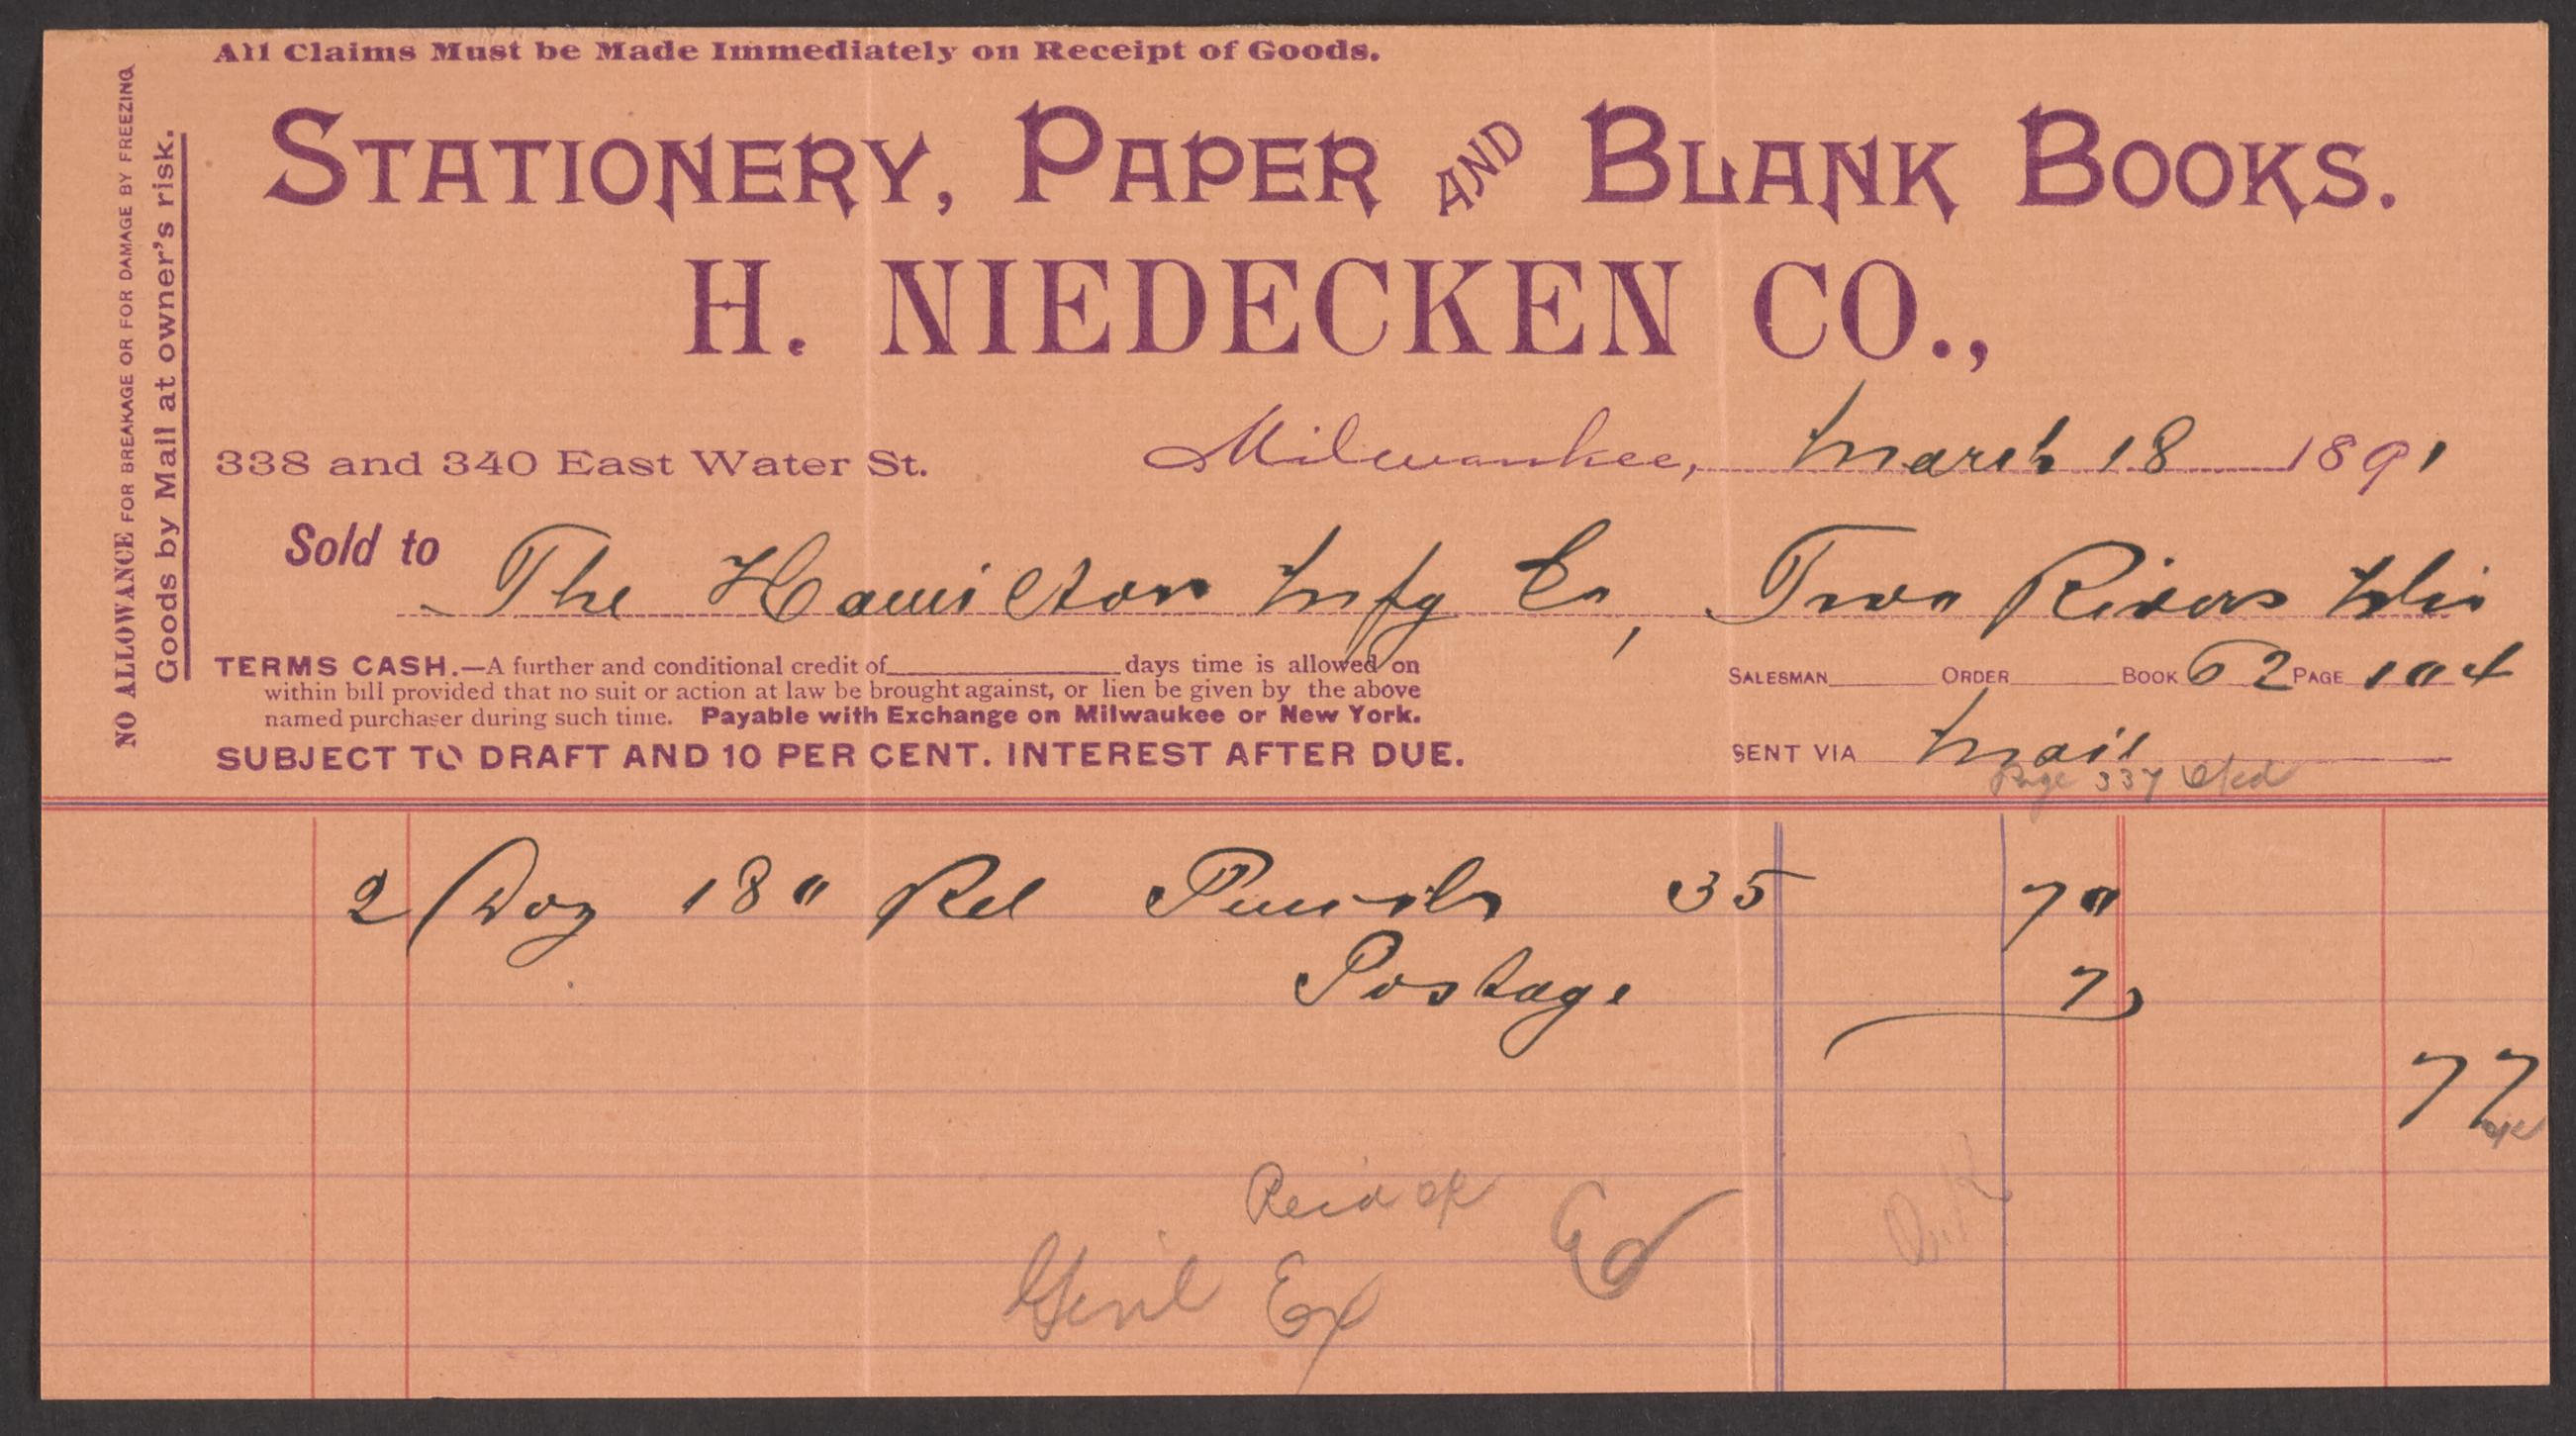 All Claims Must be Made Immediately on Receipt of Goods.
NO ALLOWANCE FOR BREAKAGE OR FOR DAMAGE BY FREEZING
Goods by Mail at owner's risk.
STATIONERY, PAPER AND BLANK BOOKS.
H. NIEDECKEN CO.,
338 and 340 East Water St. Milwaukee, March 18 1891
Sold to The Hamilton Mfg Co, Two Rivers Wis
TERMS CASH.—A further and conditional credit of days time is allowed on
within bill provided that no suit or action at law be brought against, or lien be given by the above
named purchaser during such time. Payable with Exchange on Milwaukee or New York.
SUBJECT TO DRAFT AND 10 PER CENT. INTEREST AFTER DUE.
SALESMAN ORDER BOOK 62 PAGE 104
SENT VIA Mail
Page 337
2 Doz 180 Red Pencils 35 70
Postage 7
77
ok
Recd ok
Genl Ex
O.K